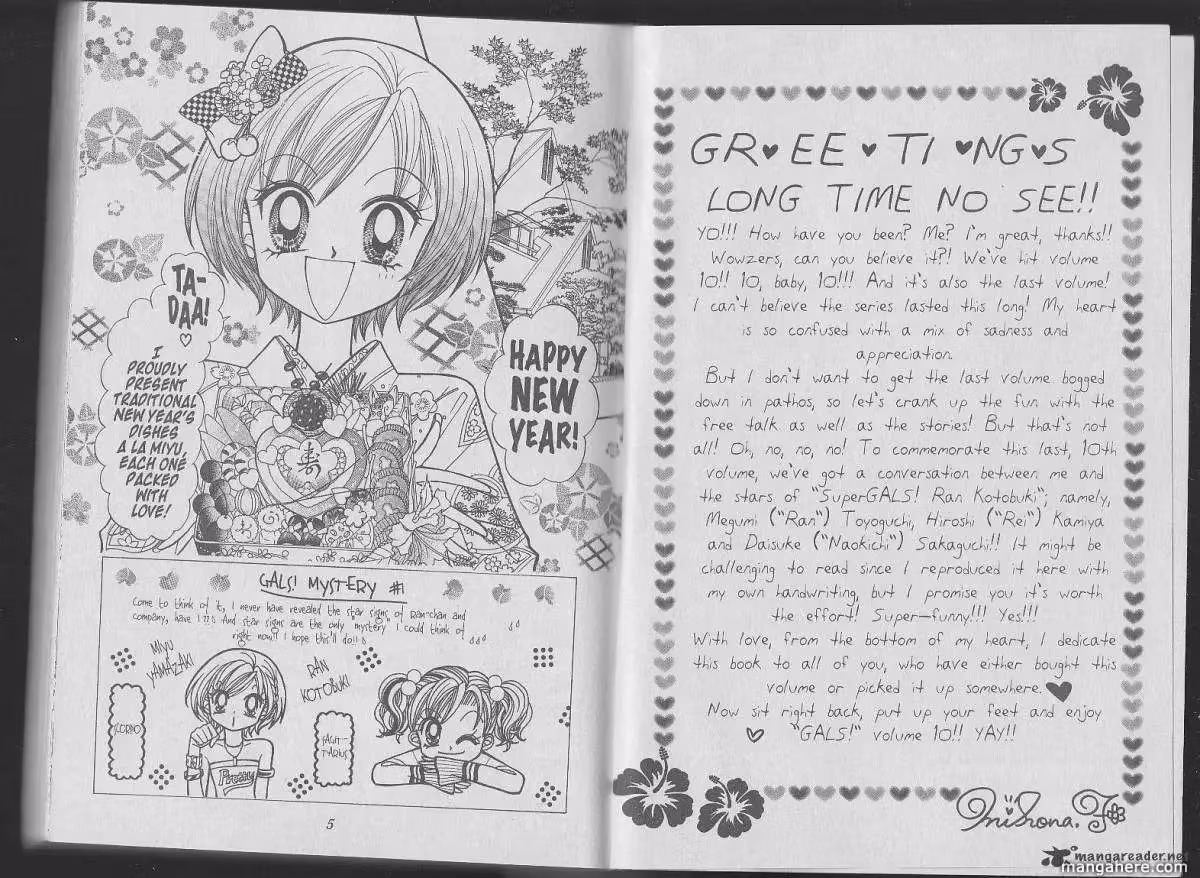 TA-
DAA!
♡
I
PROUDLY
PRESENT
TRADITIONAL
NEW YEAR'S
DISHES
A LA MIYU,
EACH ONE
PACKED
WITH
LOVE!
HAPPY
NEW
YEAR!
寿
GALS! MYSTERY #1
Come to think of it, I never have revealed the star signs of Ran-chan and
company, have I?! And star signs are the only "mystery" I could think of
right now!! I hope this'll do!!
MIYU
YAMAZAKI
RAN
KOTOBUKI
SAGIT-
TARIUS
Pretty
5
GR♥EE♥TI♥NG♥S
LONG TIME NO SEE!!
YO!!! How have you been? Me? I'm great, thanks!!
Wowzers, can you believe it?! We've hit volume
10!! 10, baby, 10!!! And it's also the last volume!
I can't believe the series lasted this long! My heart
is so confused with a mix of sadness and
appreciation.
But I don't want to get the last volume bogged
down in pathos, so let's crank up the fun with the
free talk as well as the stories! But that's not
all! Oh, no, no, no! To commemorate this last, 10th
volume, we've got a conversation between me and
the stars of "SuperGALS! Ran Kotobuki"; namely,
Megumi ("Ran") Toyoguchi, Hiroshi ("Rei") Kamiya
and Daisuke ("Naokichi") Sakaguchi!! It might be
challenging to read since I reproduced it here with
my own handwriting, but I promise you it's worth
the effort! Super-funny!!! Yes!!!
With love, from the bottom of my heart, I dedicate
this book to all of you, who have either bought this
volume or picked it up somewhere. ♥
Now sit right back, put up your feet and enjoy
♡ "GALS!" volume 10!! YAY!!
mangareader.net
manganere.com